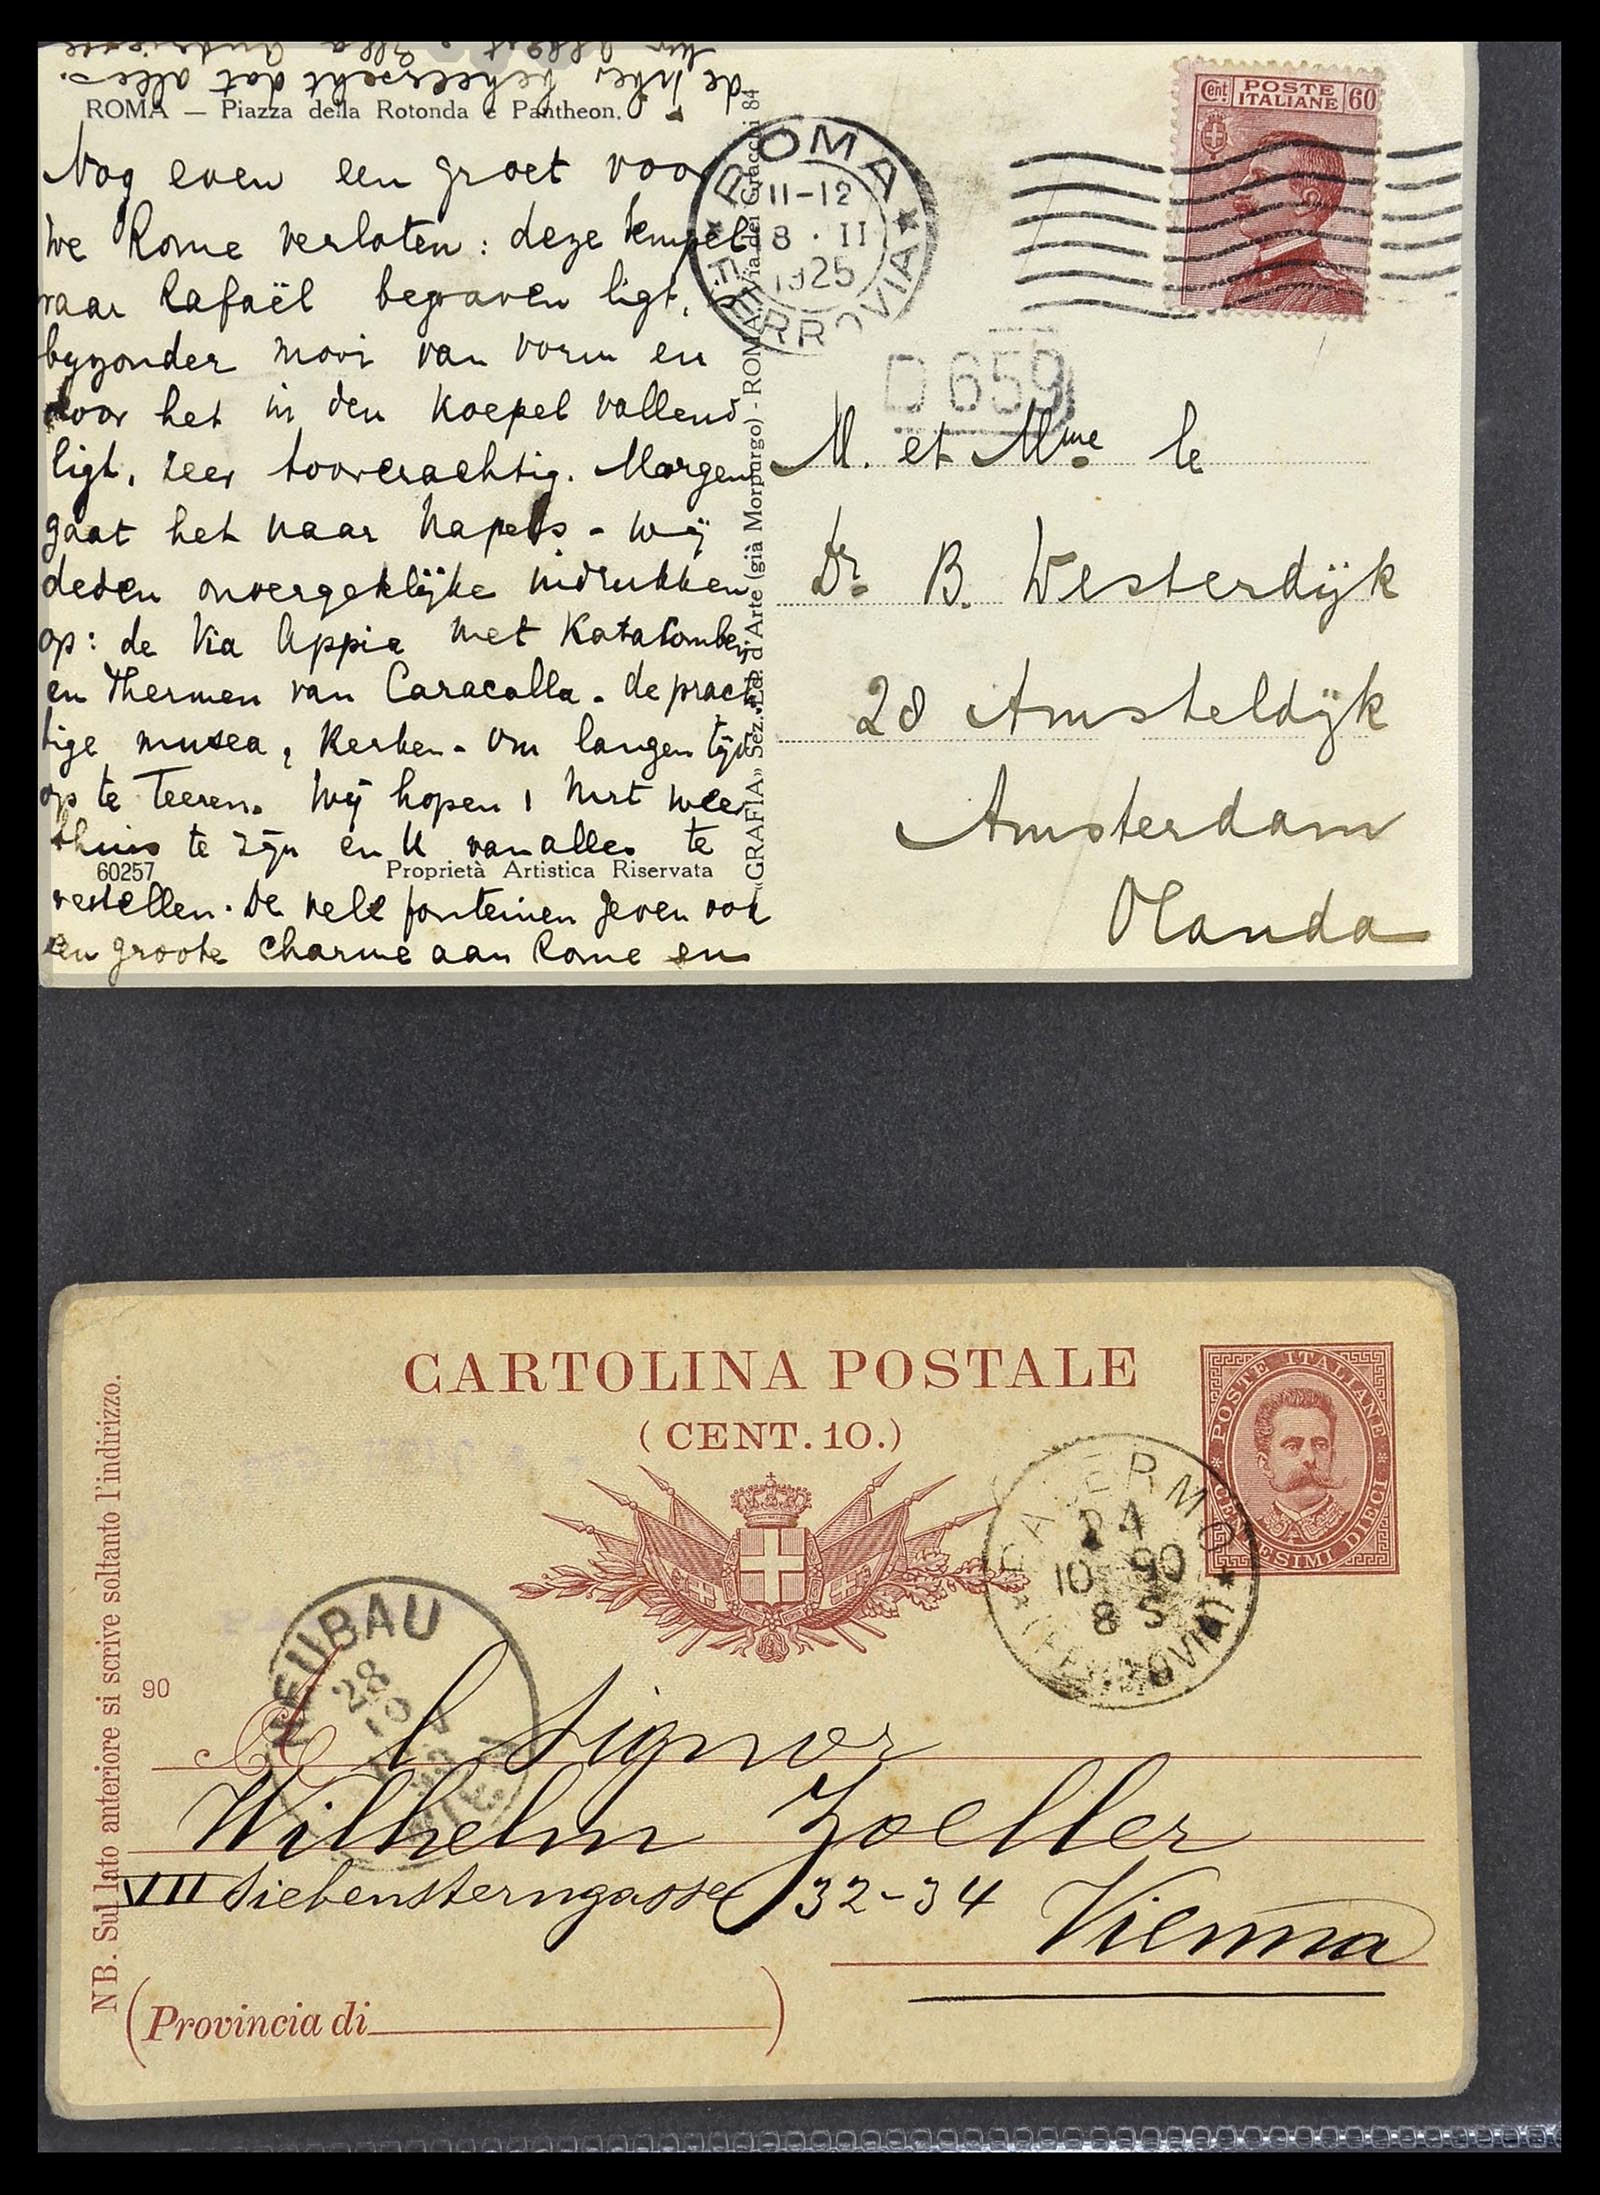 de tiber beheerscht dat alles.
ROMA — Piazza della Rotonda e Pantheon.
Nog even een groet voor
we Rome verlaten: deze tempel
waar Rafaël begraven ligt, is
byzonder mooi van vorm en
door het in den Koepel vallend
ligt, zeer toovcrachtig. Morgen
gaat het naar Napels - wij
deden onvergeklijke indrukken
op: de Via Appia met Katakomben
en Thermen van Caracalla. de prach
tige musea, Kerken - om langen tijd
op te Teeren. Wij hopen 1 Mrt weer
thuis te zijn en U van alles te
60257
Proprietà Artistica Riservata
vertellen. De vele fonteinen geven ook
een groote charme aan Rome en
«GRAFIA» Sez. Ed. d'Arte (già Morpurgo) - ROMA, Via dei Gracchi 84
ROMA
11-12
8 · II
1925
FERROVIA
Cent. POSTE ITALIANE 60
D 659
M. et Mme le
Dr. B. Westerdijk
28 Amsteldijk
Amsterdam
Olanda
CARTOLINA POSTALE
(CENT. 10.)
POSTE ITALIANE
CENTESIMI DIECI
PALERMO
24
10 90
8 S
(FERROVIA)
NEUBAU
28
10
WIEN
90
NB. Sul lato anteriore si scrive soltanto l'indirizzo.
Al Signor
Wilhelm Zoeller
VII Siebensterngasse 32-34
Vienna
(Provincia di )